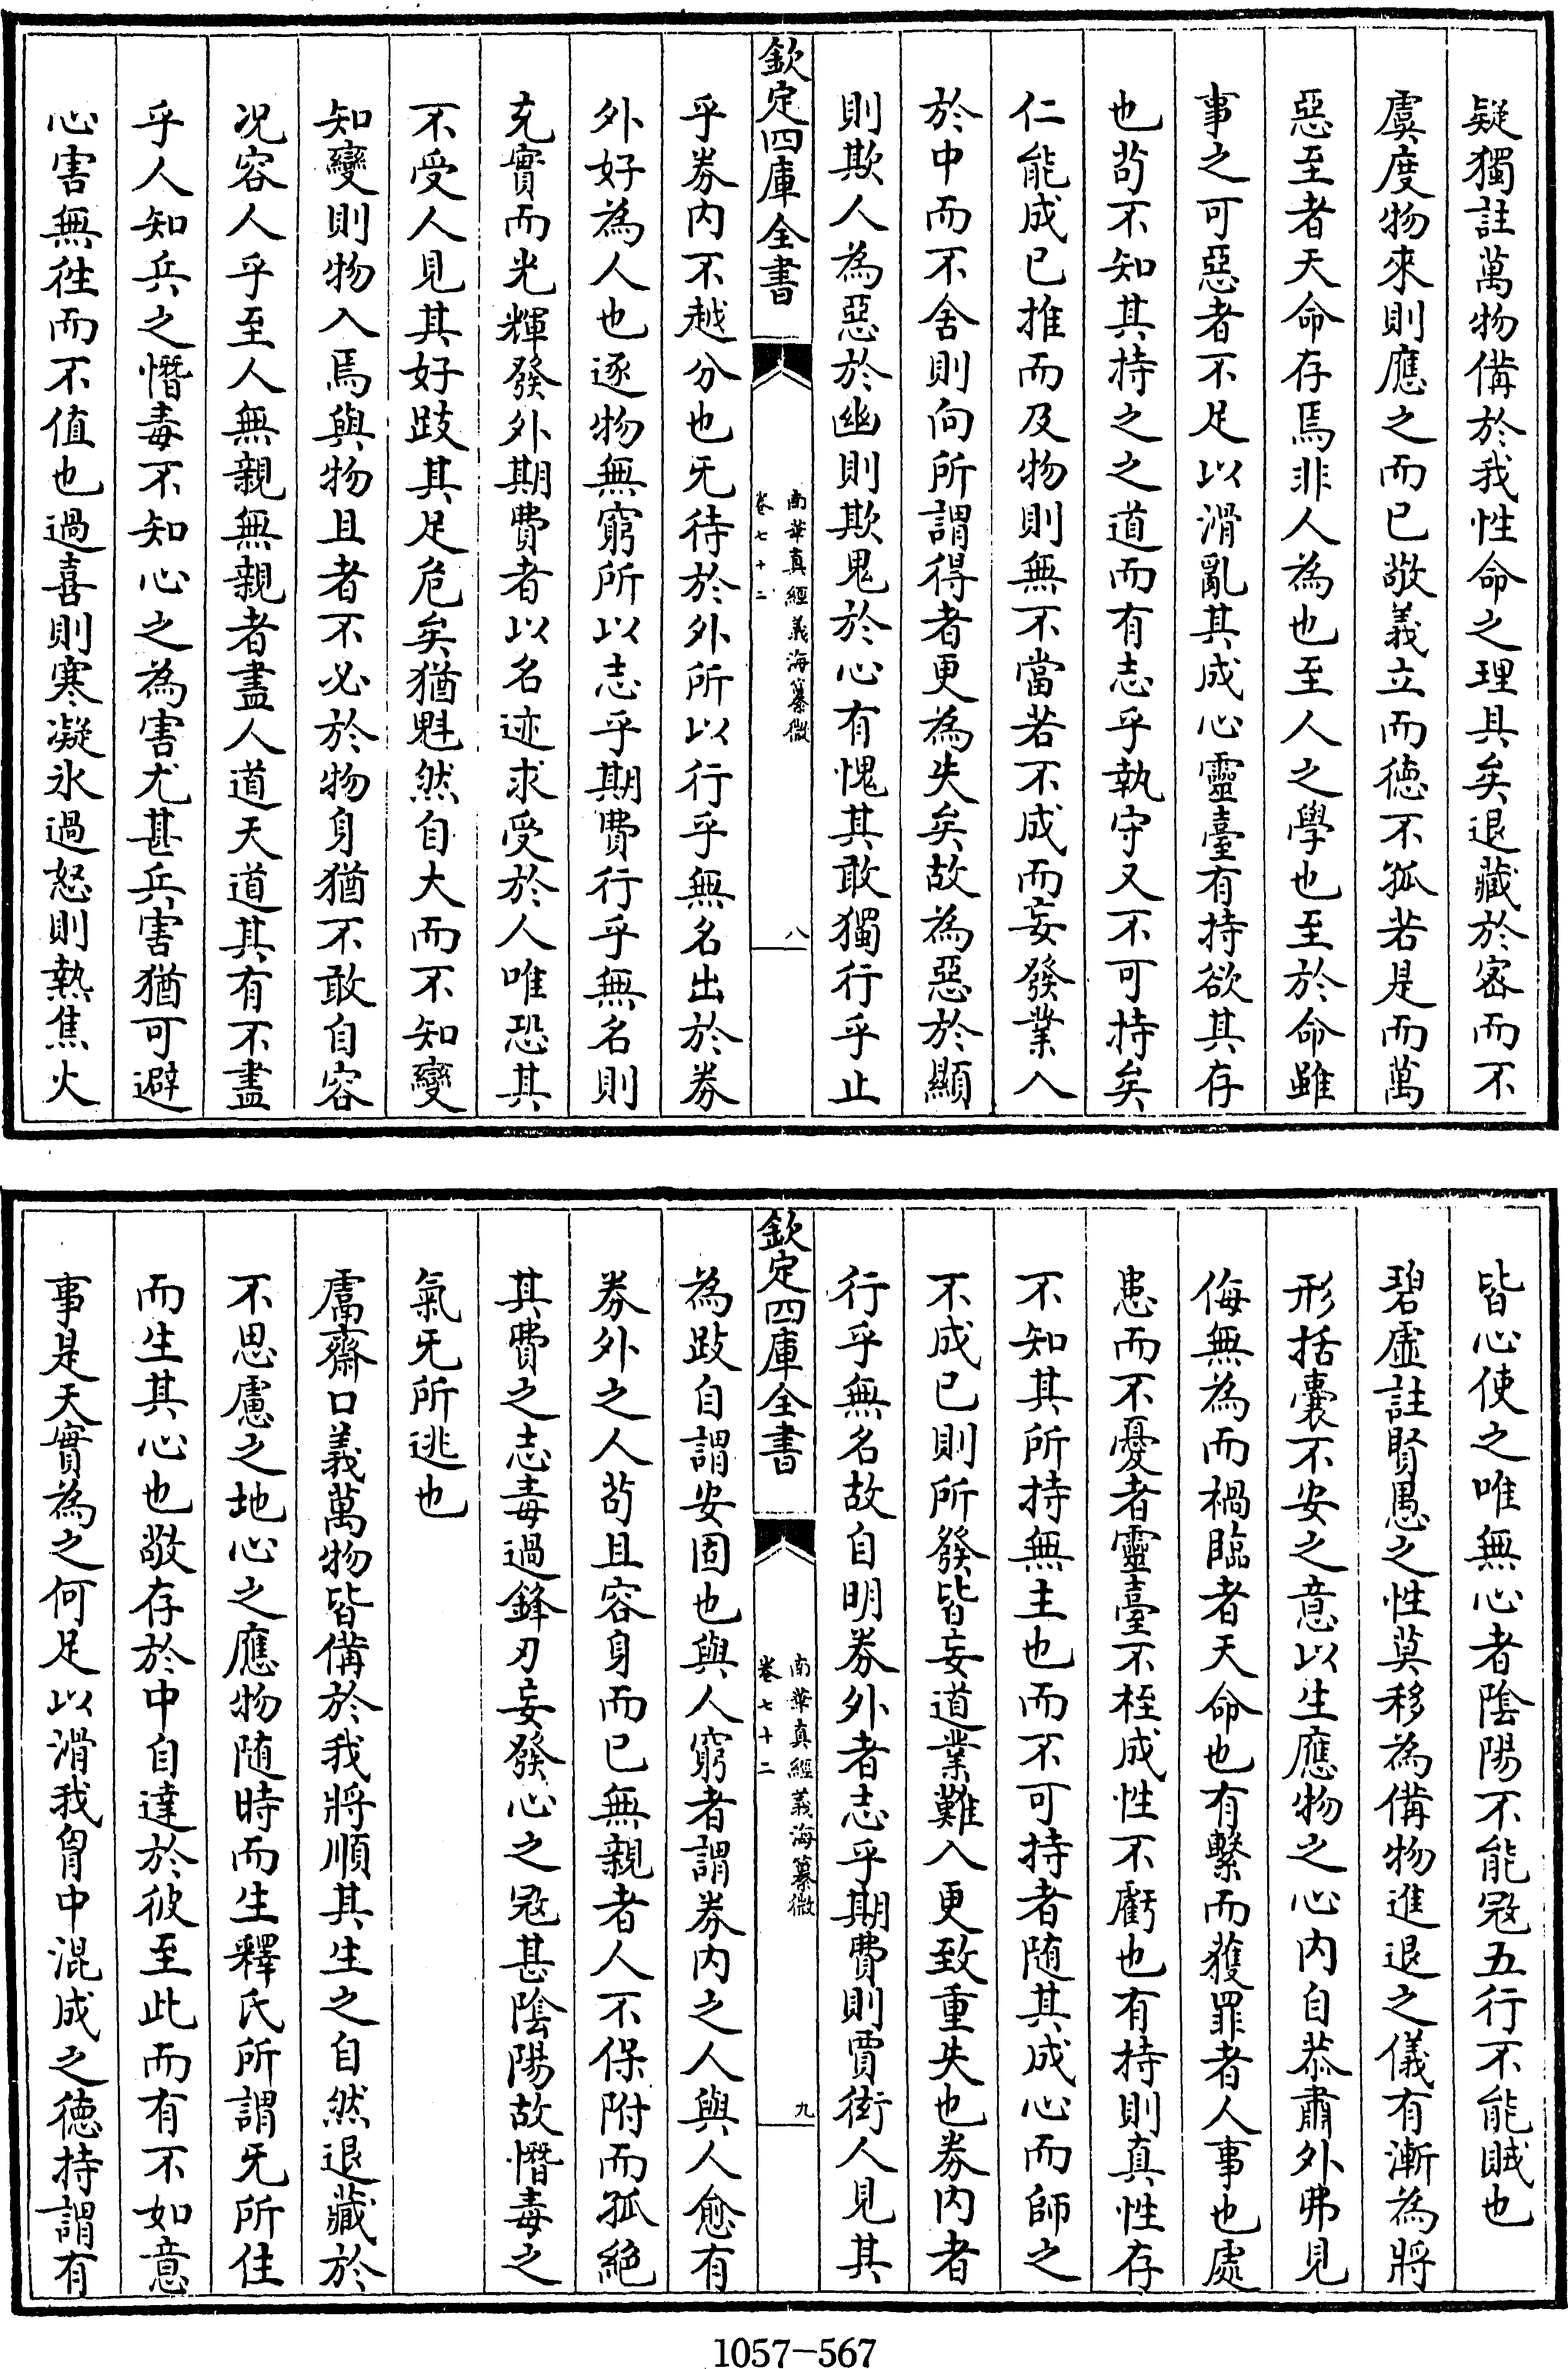 疑獨註萬物備於我性命之理具矣退藏於密而不
虞度物來則應之而已敬義立而徳不孤若是而萬
惡至者天命存焉非人為也至人之學也至於命雖
事之可惡者不足以滑亂其成心靈臺有持欲其存
也茍不知其持之之道而有志乎執守又不可持矣
仁能成已推而及物則無不當若不成而妄發業入
於中而不舍則向所謂得者更為失矣故為惡於顯
則欺人為惡於幽則欺鬼於心有愧其敢獨行乎止
欽定四庫全書
南華真經義海纂微
卷七十二
八
乎券内不越分也无待於外所以行乎無名出於券
外好為人也逐物無窮所以志乎期費行乎無名則
充實而光輝發外期費者以名迹求受於人唯恐其
不受人見其好跂其足危矣猶魁然自大而不知變
知變則物入焉與物且者不必於物身猶不敢自容
况容人乎至人無親無親者盡人道天道其有不盡
乎人知兵之憯毒不知心之為害尤甚兵害猶可避
心害無徃而不值也過喜則寒凝氷過怒則熱焦火
皆心使之唯無心者陰陽不能冦五行不能賊也
碧虛註賢愚之性莫移為備物進退之儀有漸為將
形括囊不安之意以生應物之心内自恭肅外弗見
侮無為而禍臨者天命也有繫而獲罪者人事也處
患而不憂者靈臺不桎成性不虧也有持則真性存
不知其所持無主也而不可持者隨其成心而師之
不成已則所發皆妄道業難入更致重失也券内者
行乎無名故自明券外者志乎期費則賈衒人見其
欽定四庫全書
南華真經義海纂微
卷七十二
九
為跂自謂安固也與人窮者謂券内之人與人愈有
券外之人茍且容身而已無親者人不保附而孤絶
其費之志毒過鋒刃妄發心之冦甚陰陽故憯毒之
氣无所逃也
鬳齋口義萬物皆備於我將順其生之自然退藏於
不思慮之地心之應物隨時而生釋氏所謂无所住
而生其心也敬存於中自達於彼至此而有不如意
事是天實為之何足以滑我胷中混成之徳持謂有
1057-567